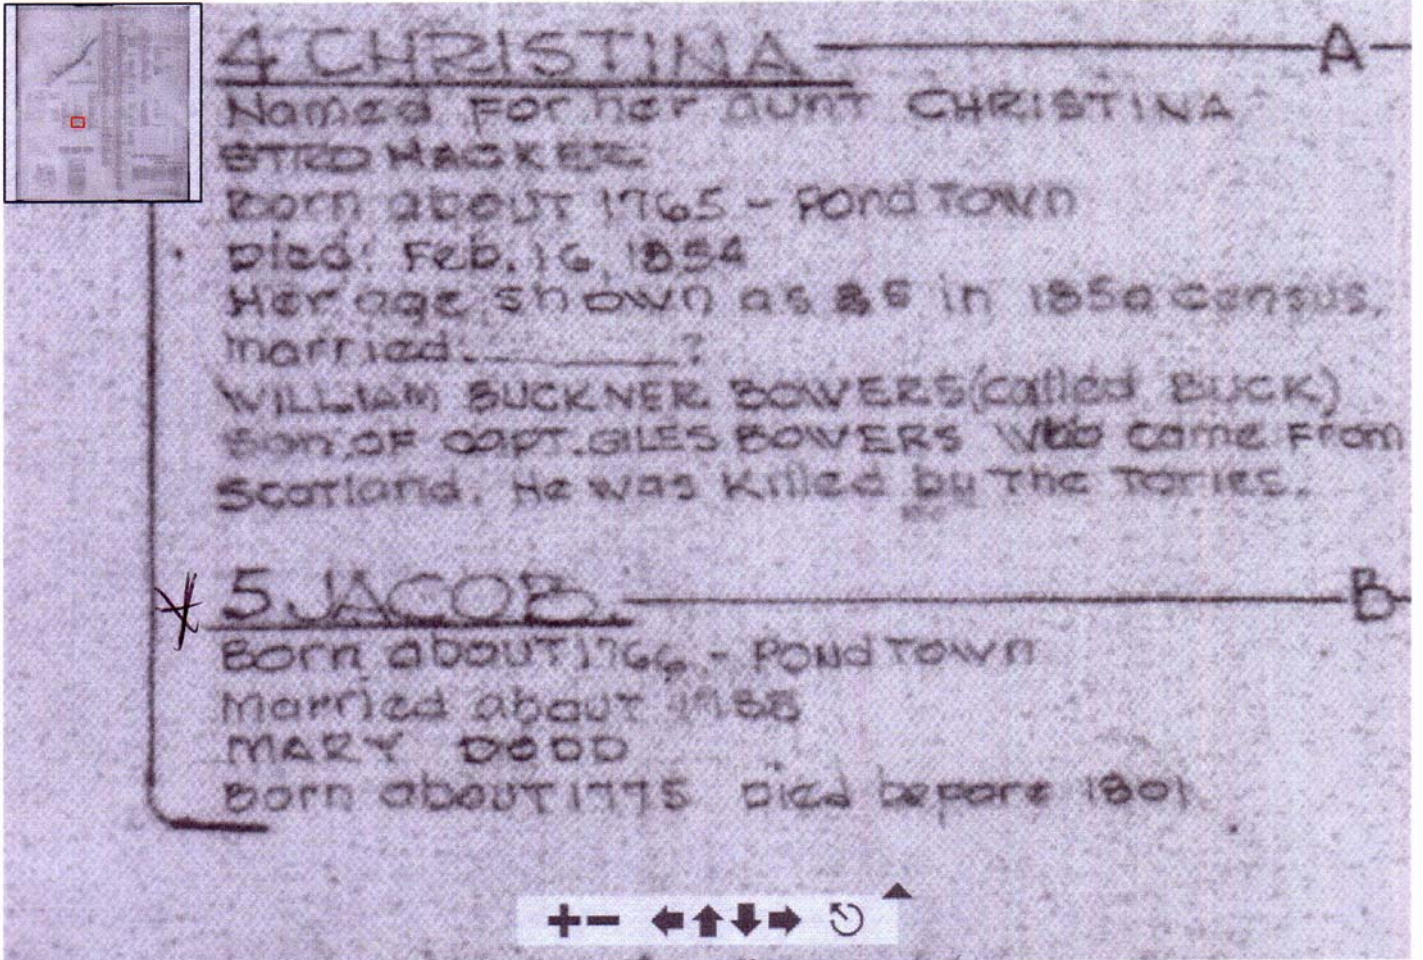 4 CHRISTINA A
Named For her aunt CHRISTINA
STROMACKER
Born about 1765 - Pond Town
Died: Feb. 16, 1854
Her age shown as 85 in 1850 census.
married. ________?
WILLIAM BUCKNER BOWERS (called BUCK)
Son. OF CAPT. GILES BOWERS Who came From
Scotland. He was Killed by The Tories.
5 JACOB. B
Born about 1766 - Pond Town
Married about 1788
MARY DODD
Born about 1775 Died before 1801